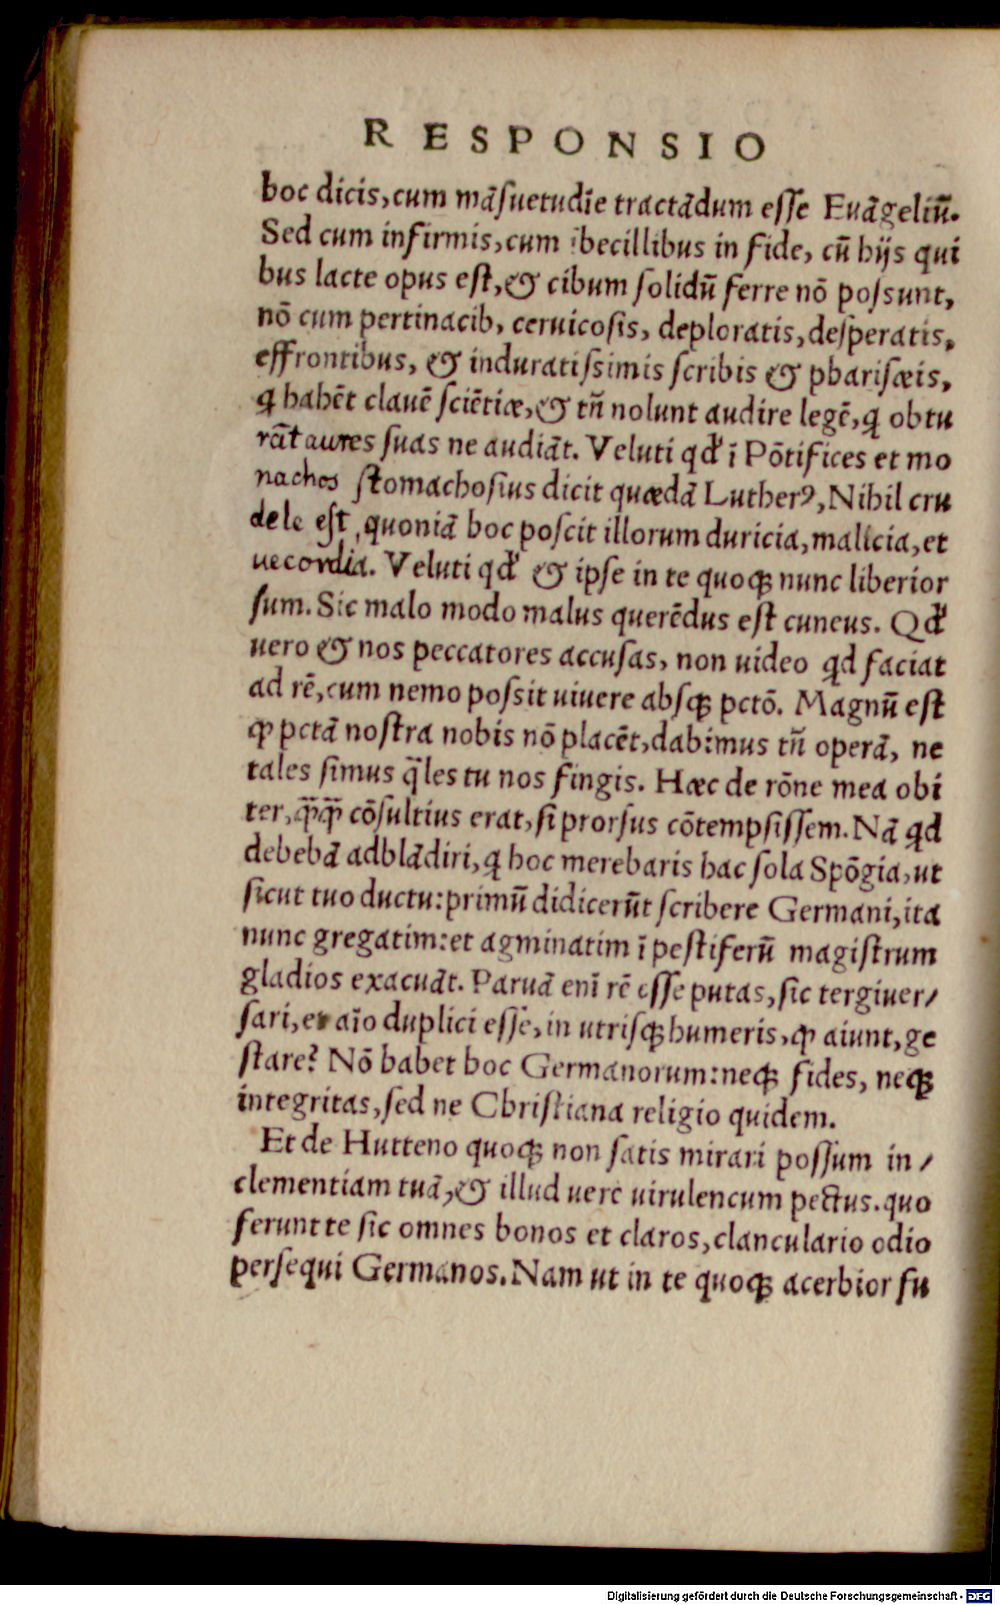 RESPONSIO
hoc dicis, cum mãsuetudĩe tractãdum esse Euãgeliũ.
Sed cum infirmis, cum ĩbecillibus in fide, cũ hijs qui
bus lacte opus est, & cibum solidũ ferre nõ possunt,
nõ cum pertinacib, ceruicosis, deploratis, desperatis,
effrontibus, & induratissimis scribis & pharisæis,
ꝗ habẽt clauẽ sciẽtiæ, & tñ nolunt audire legẽ, ꝗ obtu
rãt aures suas ne audiãt. Veluti qd̓ ĩ Põtifices et mo
nachos stomachosius dicit quædã Lutherꝰ, Nihil cru
dele est, quoniã hoc poscit illorum duricia, malicia, et
uecordia. Veluti qd̓ & ipse in te quoqꝫ nunc liberior
sum. Sic malo modo malus querẽdus est cuneus. Qd̓
uero & nos peccatores accusas, non uideo ꝗd faciat
ad rẽ, cum nemo possit uiuere absqꝫ pctõ. Magnũ est
ꝙ pctã nostra nobis nõ placẽt, dabimus tñ operã, ne
tales simus q̃les tu nos fingis. Hæc de rõne mea obi
ter, ꝙ̃ꝙ̃ cõsultius erat, si prorsus cõtempsissem. Nã ꝗd
debebã adblãdiri, ꝗ hoc merebaris hac sola Spõgia, ut
sicut tuo ductu: primũ didicerũt scribere Germani, ita
nunc gregatim: et agminatim ĩ pestiferũ magistrum
gladios exacuãt. Paruã enĩ rẽ esse putas, sic tergiuer/
sari, et aĩo duplici esse, in utrisqꝫ humeris, ꝙ aiunt, ge
stare? Nõ habet hoc Germanorum: neqꝫ fides, neqꝫ
integritas, sed ne Christiana religio quidem.
Et de Hutteno quoqꝫ non satis mirari possum in/
clementiam tuã, & illud uere uirulencum pectus. quo
ferunt te sic omnes bonos et claros, clanculario odio
persequi Germanos. Nam ut in te quoqꝫ acerbior fu
Digitalisierung gefördert durch die Deutsche Forschungsgemeinschaft - DFG